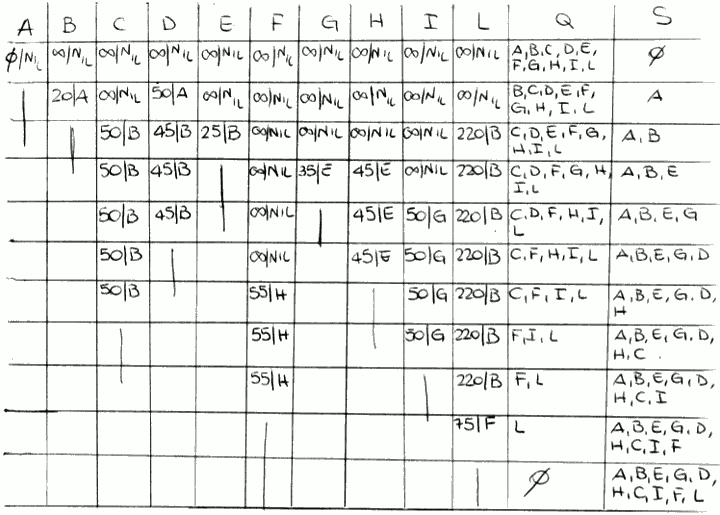 A B C D E F G H I L Q S
Ø/NIL ∞/NIL ∞/NIL ∞/NIL ∞/NIL ∞/NIL ∞/NIL ∞/NIL ∞/NIL ∞/NIL A,B,C,D,E, Ø
F,G,H,I,L
20/A ∞/NIL 50/A ∞/NIL ∞/NIL ∞/NIL ∞/NIL ∞/NIL ∞/NIL B,C,D,E,F, A
G,H,I,L
50/B 45/B 25/B ∞/NIL ∞/NIL ∞/NIL ∞/NIL 220/B C,D,E,F,G, A,B
H,I,L
50/B 45/B ∞/NIL 35/E 45/E ∞/NIL 220/B C,D,F,G,H, A,B,E
I,L
50/B 45/B ∞/NIL 45/E 50/G 220/B C,D,F,H,I, A,B,E,G
L
50/B ∞/NIL 45/E 50/G 220/B C,F,H,I,L A,B,E,G,D
50/B 55/H 50/G 220/B C,F,I,L A,B,E,G,D,
H
55/H 50/G 220/B F,I,L A,B,E,G,D,
H,C
55/H 220/B F,L A,B,E,G,D,
H,C,I
75/F L A,B,E,G,D,
H,C,I,F
Ø A,B,E,G,D,
H,C,I,F,L